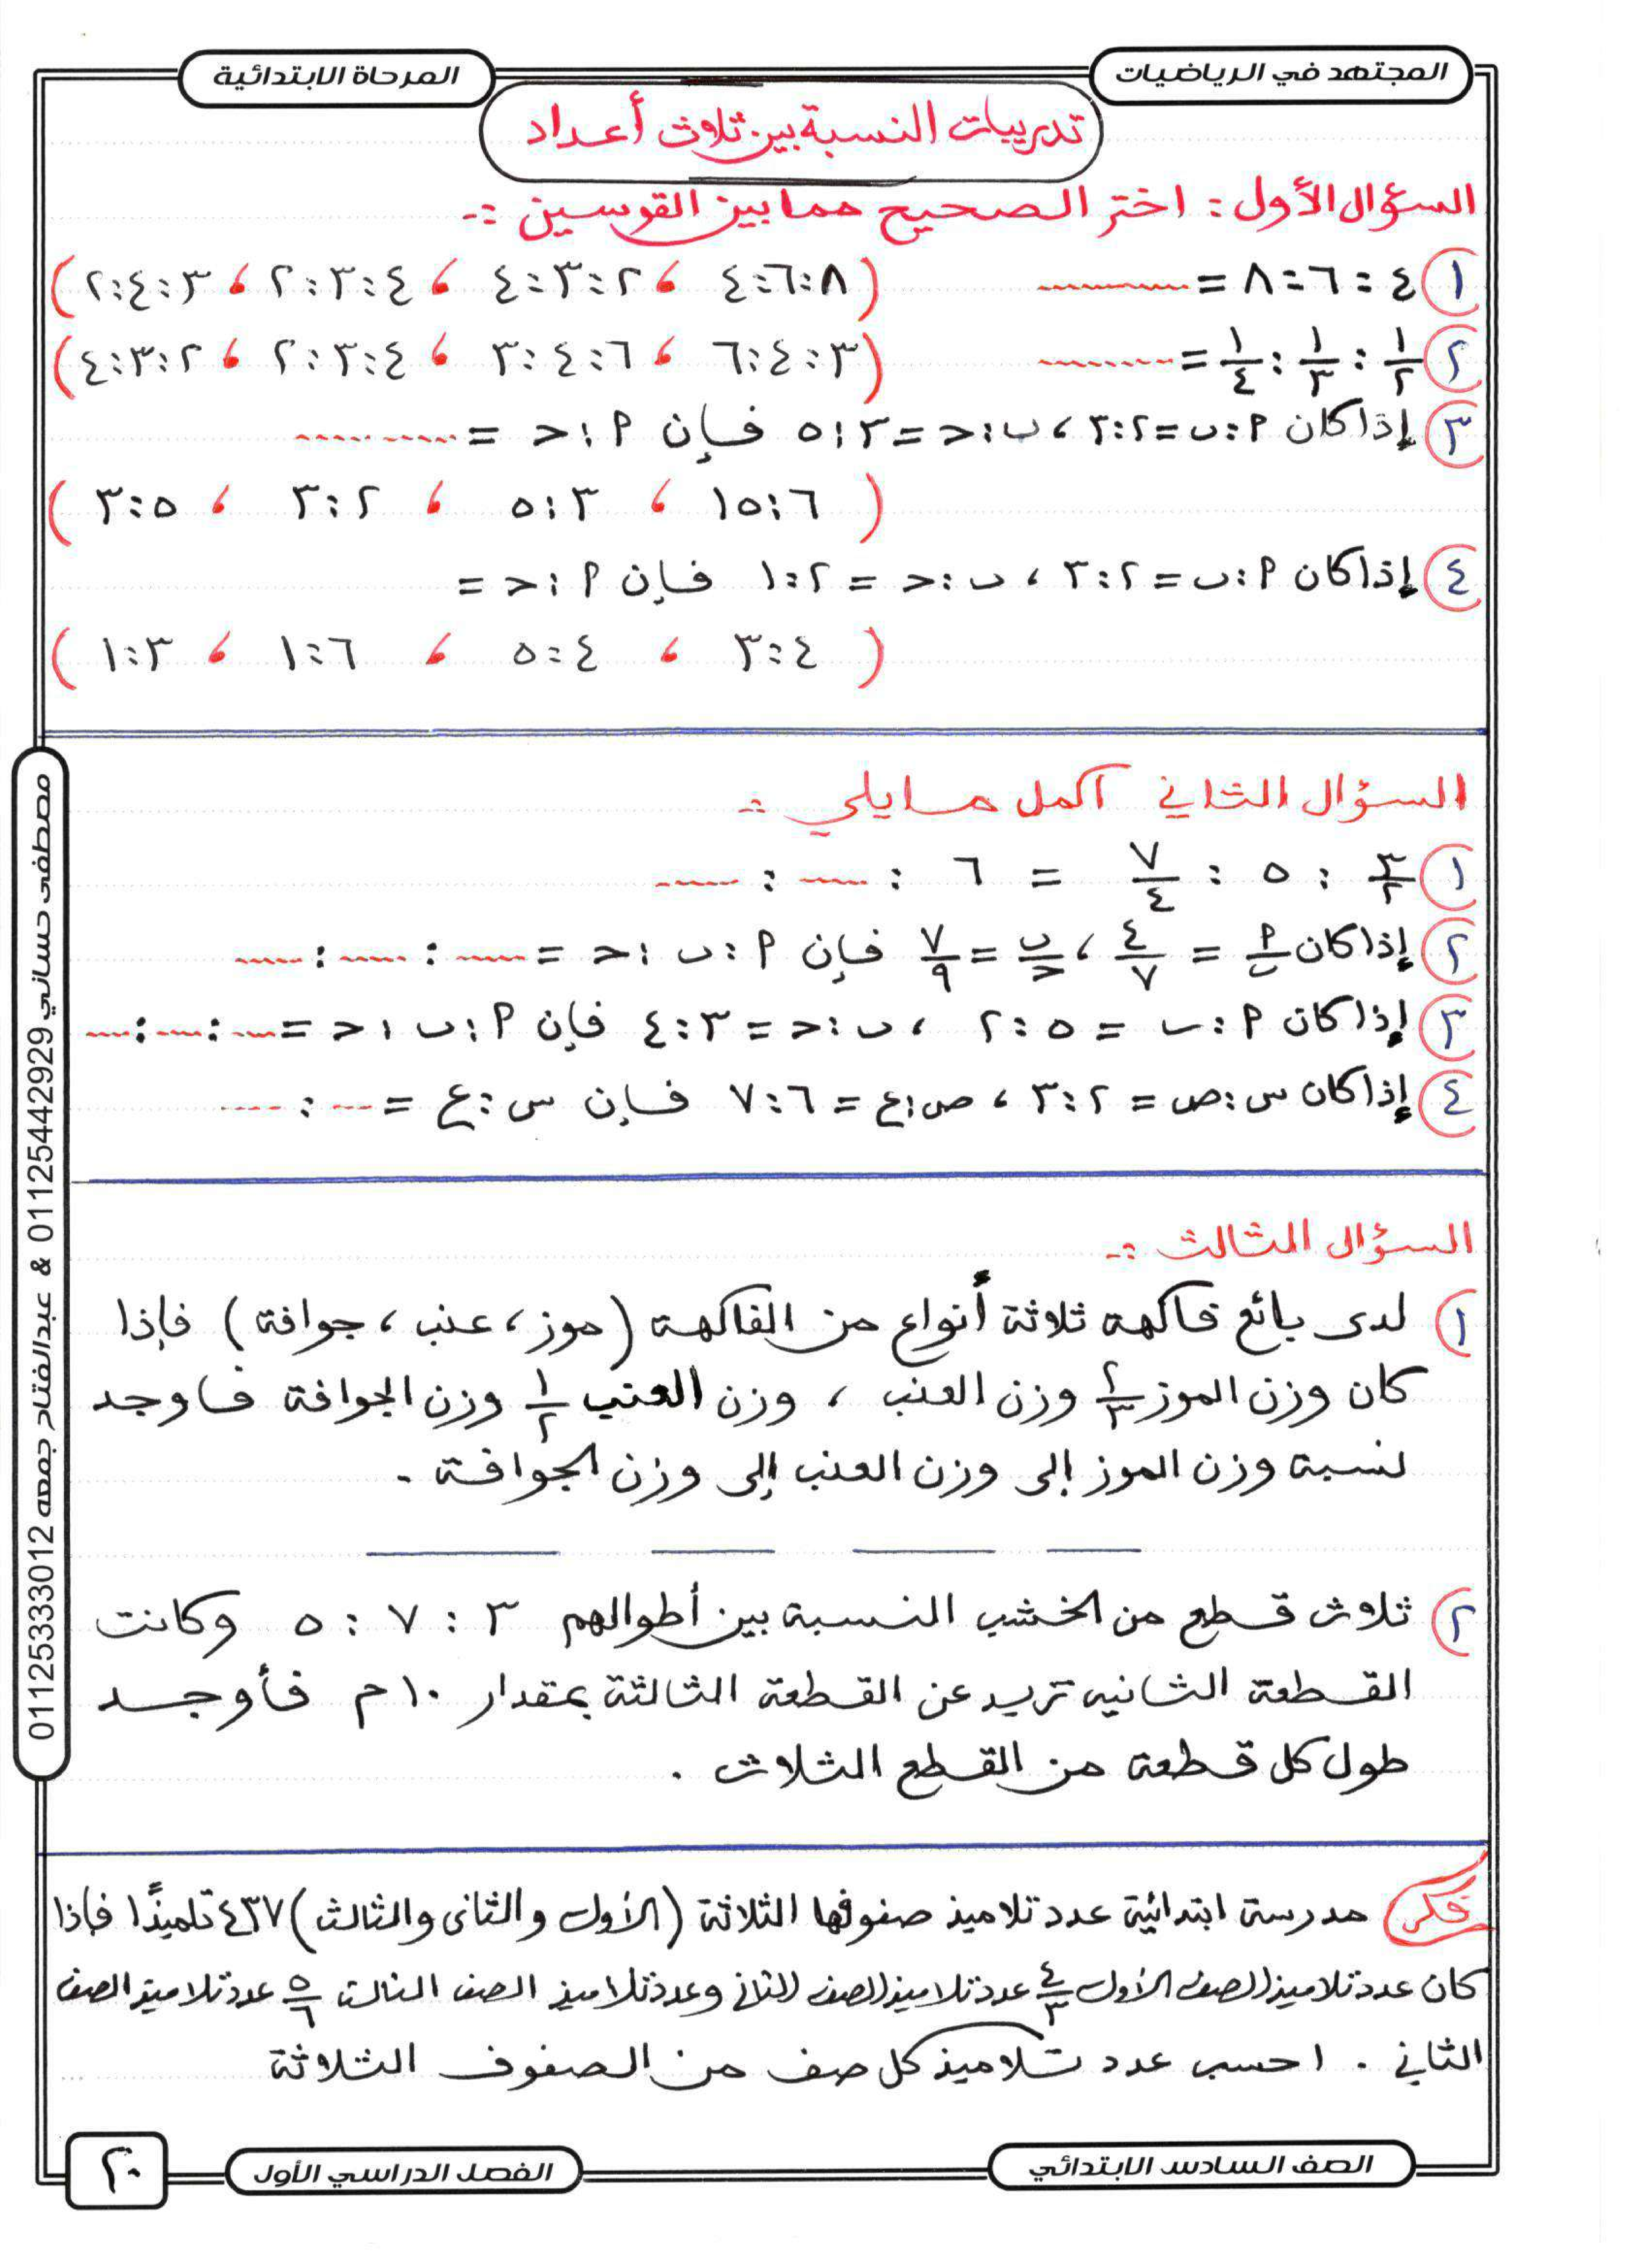 المجتهد في الرياضيات
المرحلة الابتدائية
تدريبات النسبة بين ثلاث أعداد
السؤال الأول : اختر الصحيح مما بين القوسين :-
١ ٤ : ٦ : ٨ = ........ ( ٨ : ٦ : ٤ ، ٢ : ٣ : ٤ ، ٤ : ٣ : ٢ ، ٣ : ٤ : ٢ )
٢ ١/٢ : ١/٣ : ١/٤ = ........ ( ٣ : ٤ : ٦ ، ٦ : ٤ : ٣ ، ٤ : ٣ : ٢ ، ٢ : ٣ : ٤ )
٣ إذا كان P : ب = ٢ : ٣ ، ب : حـ = ٣ : ٥ فإن P : حـ = ........
( ٦ : ١٥ ، ٣ : ٥ ، ٢ : ٣ ، ٥ : ٣ )
٤ إذا كان P : ب = ٢ : ٣ ، ب : حـ = ٢ : ١ فإن P : حـ =
( ٤ : ٣ ، ٤ : ٥ ، ٦ : ١ ، ٣ : ١ )
السؤال الثاني أكمل ما يلي :-
١ ٣/٢ : ٥ : ٧/٤ = ٦ : .... : ....
٢ إذا كان P/ب = ٤/٧ ، ب/حـ = ٧/٩ فإن P : ب : حـ = .... : .... : ....
٣ إذا كان P : ب = ٥ : ٢ ، ب : حـ = ٣ : ٤ فإن P : ب : حـ = .... : .... : ....
٤ إذا كان س : ص = ٢ : ٣ ، ص : ع = ٦ : ٧ فإن س : ع = .... : ....
السؤال الثالث :-
١ لدى بائع فاكهة ثلاثة أنواع من الفاكهة ( موز ، عنب ، جوافة ) فإذا
كان وزن الموز ٢/٣ وزن العنب ، وزن العنب ١/٢ وزن الجوافة فاوجد
نسبة وزن الموز إلى وزن العنب إلى وزن الجوافة .
٢ ثلاث قطع من الخشب النسبة بين أطوالهم ٣ : ٧ : ٥ وكانت
القطعة الثانيه تزيد عن القطعة الثالثة بمقدار ١٠ م فأوجد
طول كل قطعة من القطع الثلاث .
فكر مدرسة ابتدائية عدد تلاميذ صفوفها الثلاثة ( الأول والثانى والثالث ) ٤٣٧ تلميذًا فإذا
كان عدد تلاميذ الصف الأول ٤/٣ عدد تلاميذ الصف الثاني وعدد تلاميذ الصف الثالث ٥/٦ عدد تلاميذ الصف
الثاني . احسب عدد تلاميذ كل صف من الصفوف الثلاثة
مصطفى حساني 01125442929 & عبدالفتاح جمعه 01125333012
الصف السادس الابتدائي
الفصل الدراسي الأول
٢٠